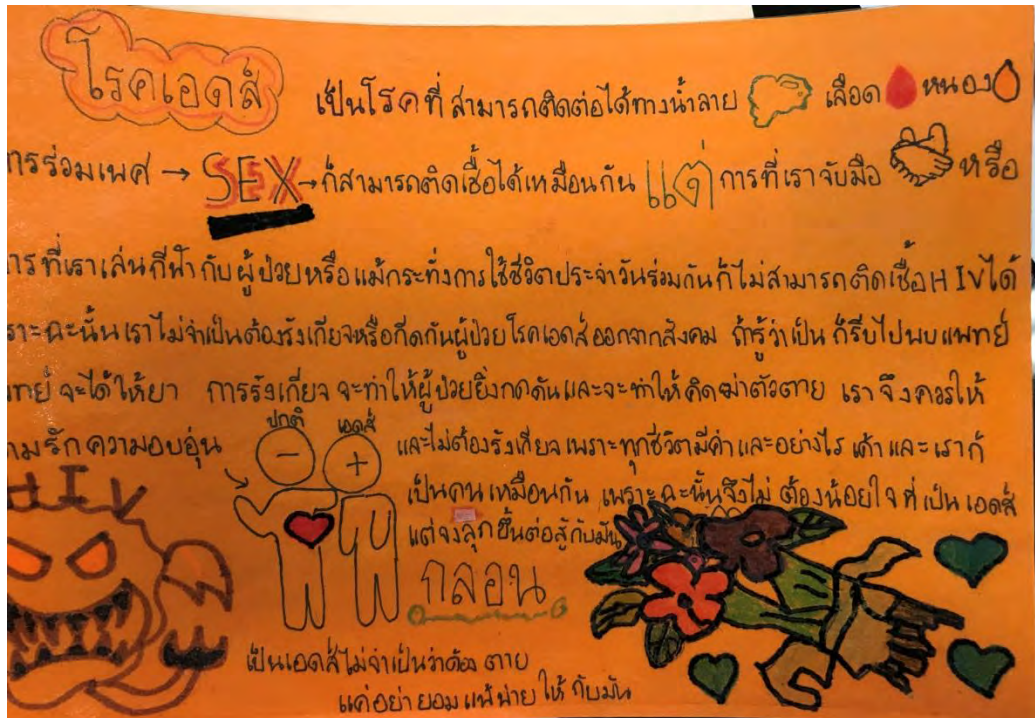 โรคเอดส์ เป็นโรคที่สามารถติดต่อได้ทางน้ำลาย เลือด หนอง
การร่วมเพศ → SEX → ก็สามารถติดเชื้อได้เหมือนกัน แต่ การที่เราจับมือ หรือ
การที่เราเล่นกีฬากับผู้ป่วยหรือแม้กระทั่งการใช้ชีวิตประจำวันร่วมกันก็ไม่สามารถติดเชื้อHIVได้
เราะฉะนั้นเราไม่จำเป็นต้องรังเกียจหรือกีดกันผู้ป่วยโรคเอดส์ออกจากสังคม ถ้ารู้ว่าเป็น ก็รีบไปพบแพทย์
แพทย์ จะได้ให้ยา การรังเกียจ จะทำให้ผู้ป่วยยิ่งกดดันและจะทำให้คิดฆ่าตัวตาย เราจึงควรให้
ความรักความอบอุ่น ปกติ เอดส์ และไม่ต้องรังเกียจเพราะทุกชีวิตมีค่าและอย่างไร เค้าและเราก็
HIV - + เป็นคนเหมือนกัน เพราะฉะนั้นจึงไม่ต้องน้อยใจที่เป็นเอดส์
แต่จงลุกขึ้นต่อสู้กับมัน
กลอน
เป็นเอดส์ไม่จำเป็นว่าต้องตาย
แค่อย่ายอมแพ้พ่ายให้กับมัน